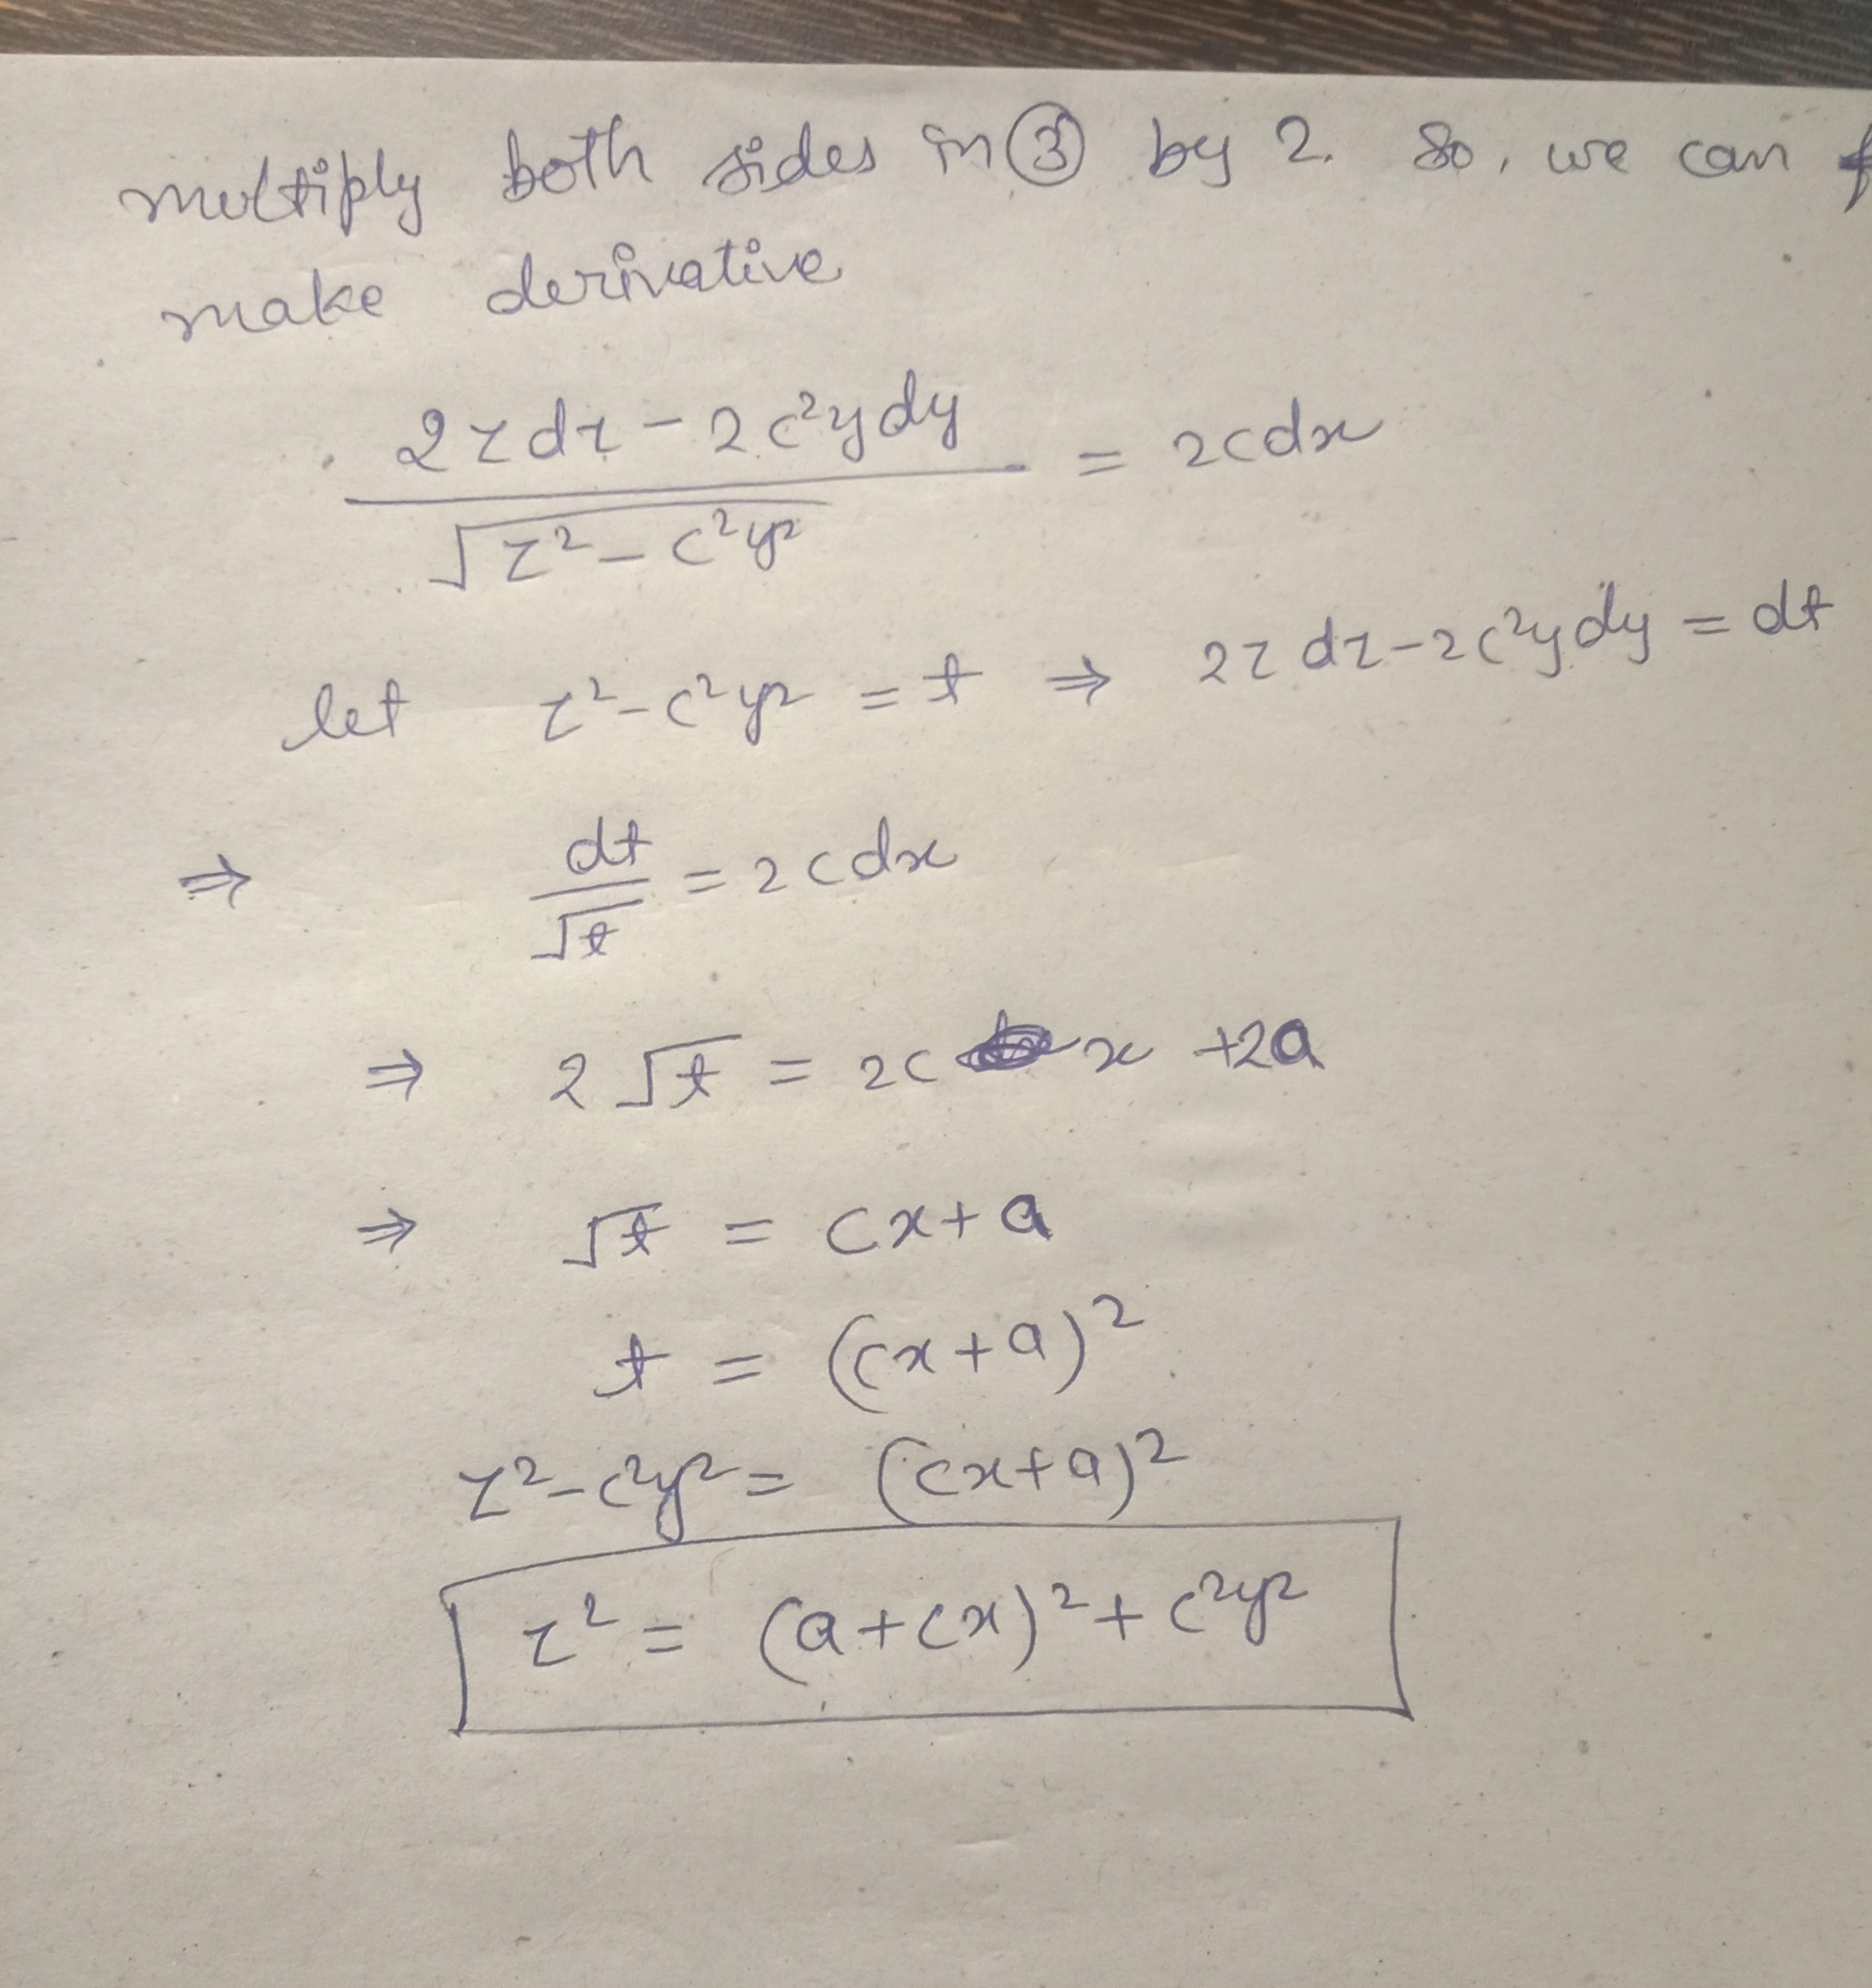 multiply both sides in ③ by 2. So, we can
make derivative
(2zdz - 2c²ydy)/√(z² - c²y²) = 2cdx
let z² - c²y² = t ⇒ 2zdz - 2c²ydy = dt
⇒ dt/√t = 2cdx
⇒ 2√t = 2c x + 2a
⇒ √t = cx + a
t = (cx + a)²
z² - c²y² = (cx + a)²
z² = (a + cx)² + c²y²